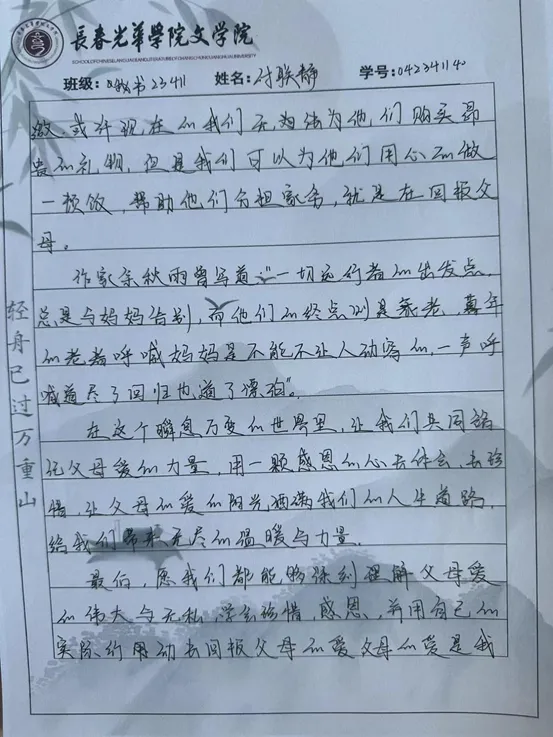 長春光華學院文学院
SCHOOL OF CHINESE LANGUAGE AND LITERATURE OF CHANGCHUN GUANGHUA UNIVERSITY
班级：秘书23411 姓名：付联静 学号：042341140
轻舟已过万重山
做，或许现在的我们无为法为他们购买昂
贵的礼物，但是我们可以为他们用心的做
一顿饭，帮助他们分担家务，就是在回报父
母。
作家余秋雨曾写道："一切远行者的出发点，
总是与妈妈告别，而他们的终点则是衰老，暮年
的老者呼喊妈妈是不能不让人动容的，一声呼
喊道尽了回归也道了漂泊"。
在这个瞬息万变的世界里，让我们共同铭
记父母爱的力量，用一颗感恩的心去体会，去珍
惜，让父母的爱的阳光洒满我们的人生道路，
给我们带来无尽的温暖与力量。
最后，愿我们都能够深刻理解父母爱
的伟大与无私，学会珍惜，感恩，并用自己的
实际行动去回报父母的爱父母的爱是我